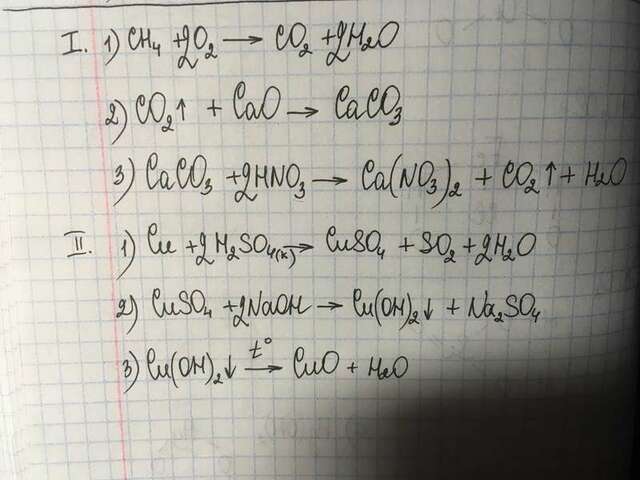 I. 1) CH₄ + 2O₂ → CO₂ + 2H₂O
2) CO₂↑ + CaO → CaCO₃
3) CaCO₃ + 2HNO₃ → Ca(NO₃)₂ + CO₂↑ + H₂O
II. 1) Cu + 2H₂SO₄₍ₖ₎ → CuSO₄ + SO₂ + 2H₂O
2) CuSO₄ + 2NaOH → Cu(OH)₂↓ + Na₂SO₄
3) Cu(OH)₂↓ t°→ CuO + H₂O